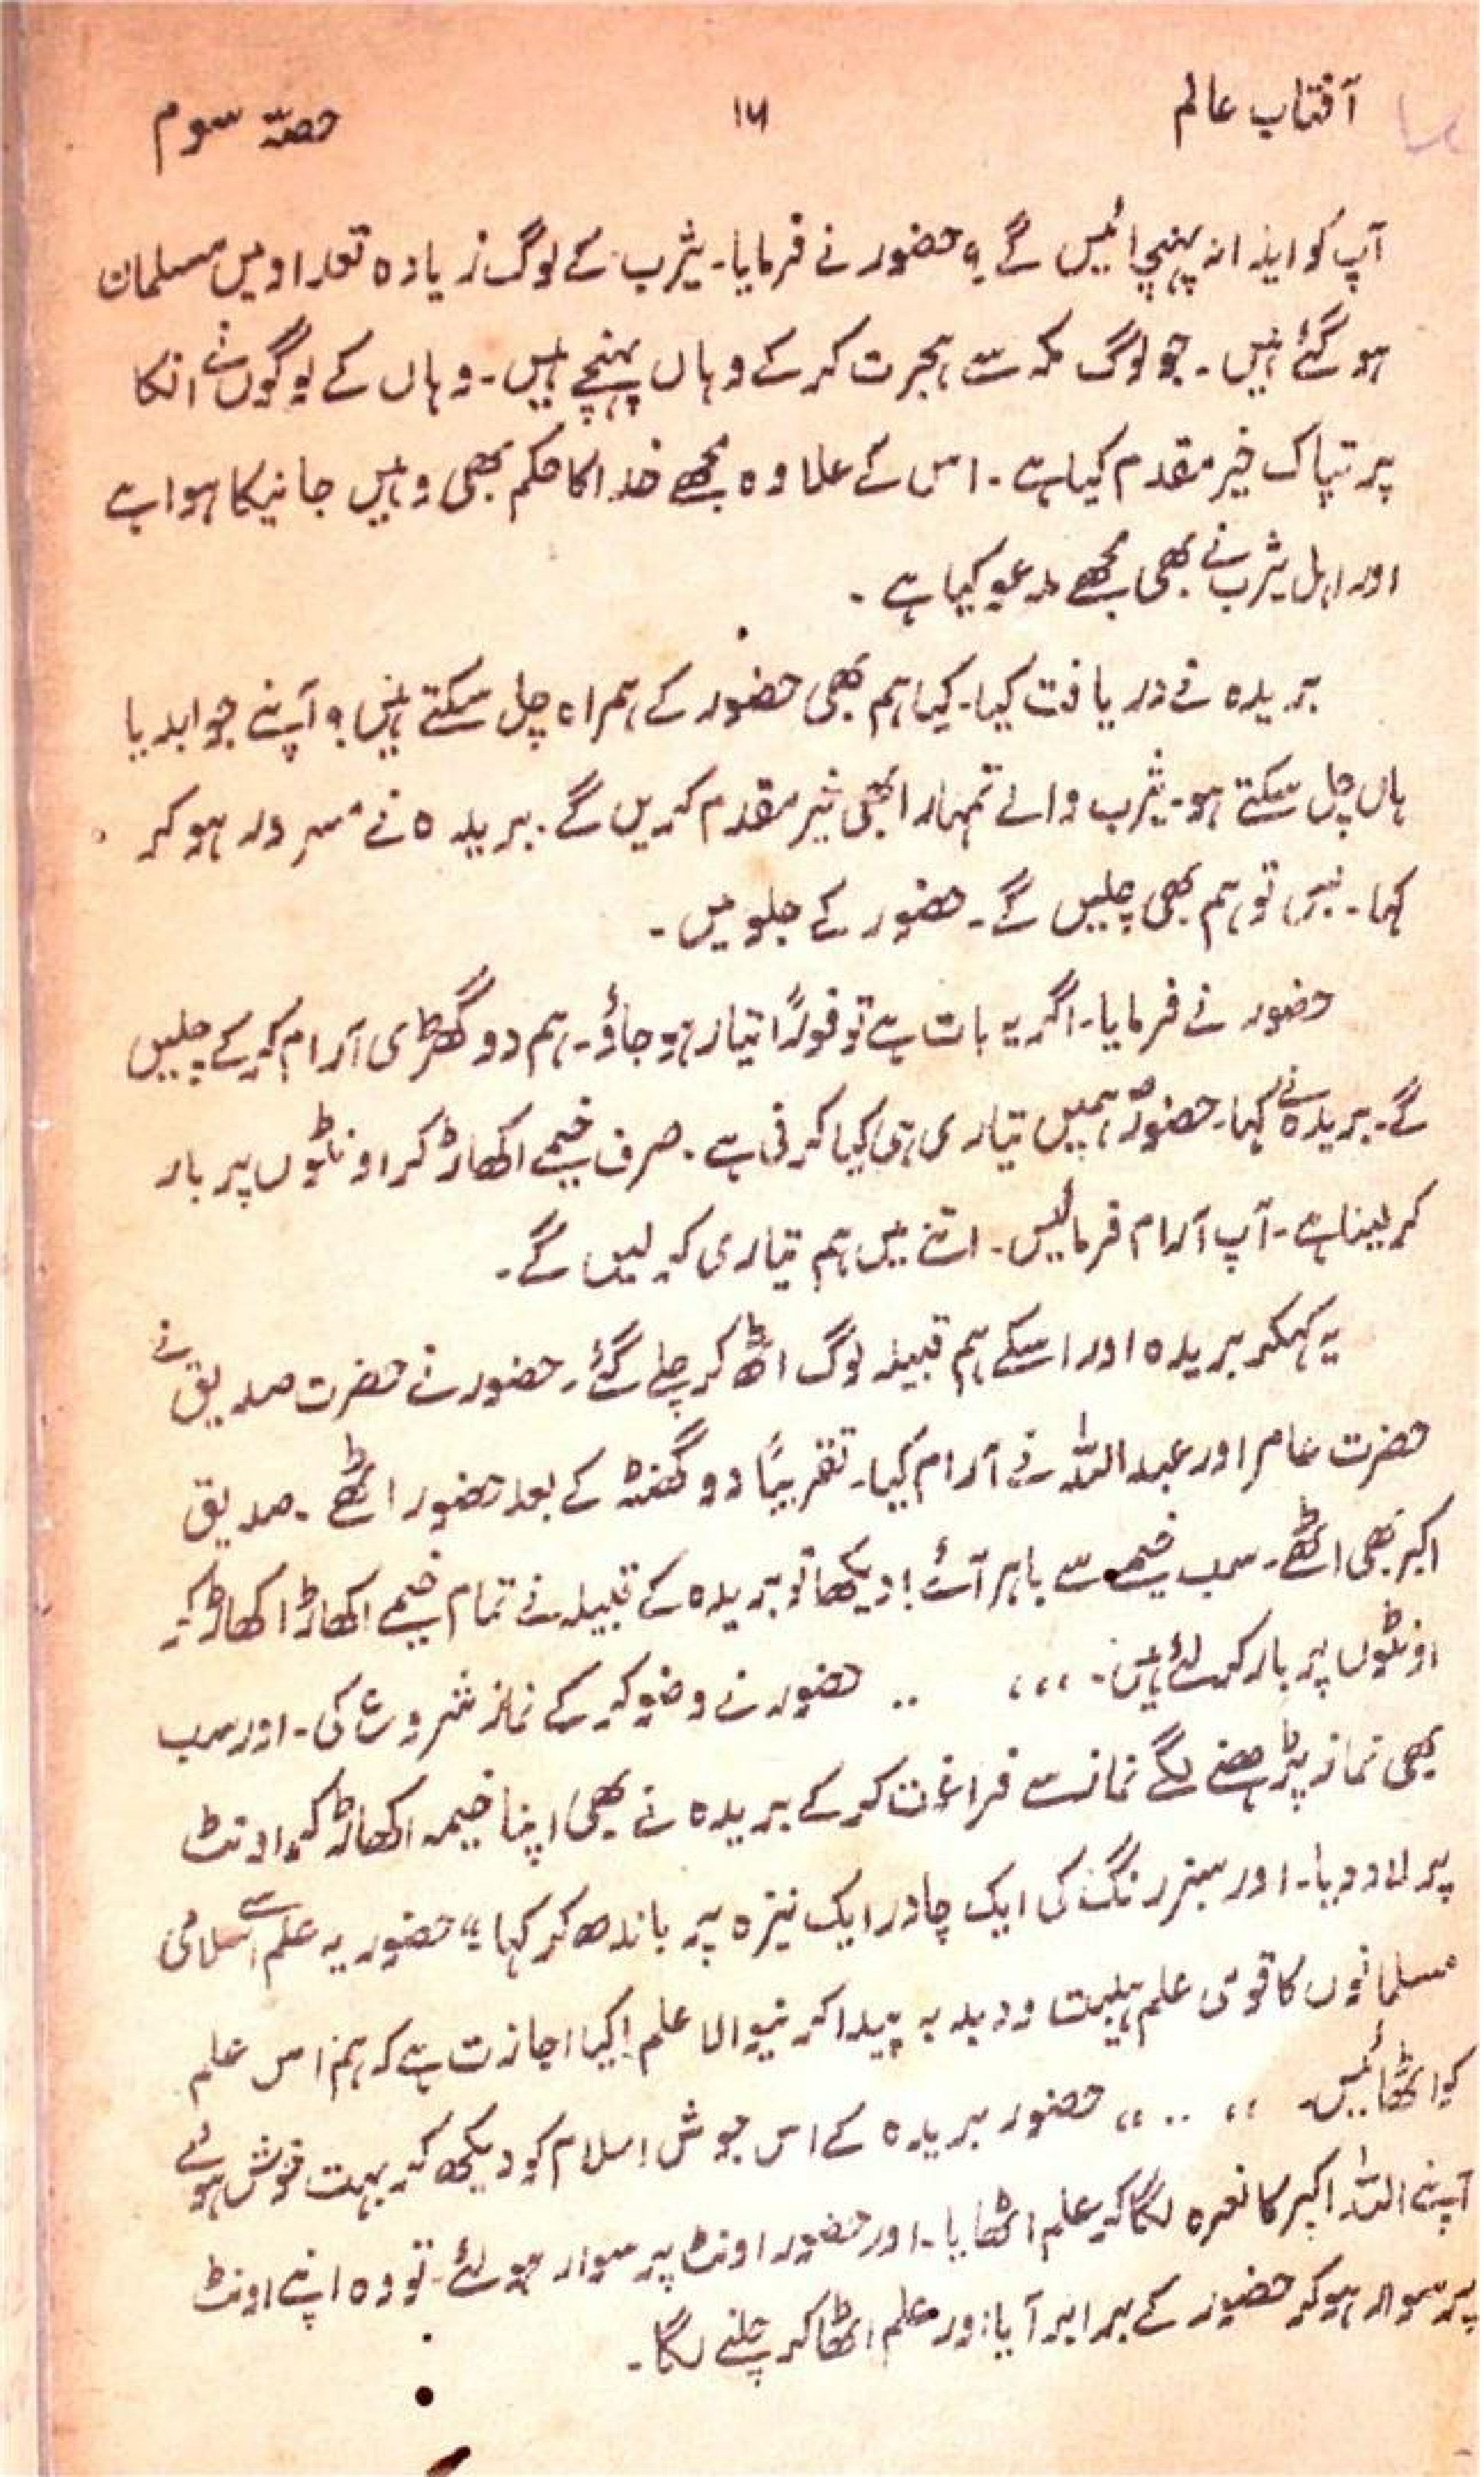 آفتاب عالم ۱۵ حصّہ سوم
آپ کو ایذا نہ پہنچائیں گے ؟ حضور نے فرمایا۔ یثرب کے لوگ زیادہ تعداد میں مسلمان
ہو گئے ہیں۔ جو لوگ مکہ سے ہجرت کر کے وہاں پہنچے ہیں۔ وہاں کے لوگوں نے انکا
پر تپاک خیر مقدم کیا ہے۔ اس کے علاوہ مجھے خدا کا حکم بھی وہیں جانیکا ہوا ہے
اور اہل یثرب نے بھی مجھے مدعو کیا ہے۔
بریدہ نے دریافت کیا۔ کیا ہم بھی حضور کے ہمراہ چل سکتے ہیں ؟ آپنے جوابدیا
ہاں چل سکتے ہو۔ یثرب والے تمہارا بھی خیر مقدم کریں گے۔ بریدہ نے مسرور ہو کر
کہا۔ بس تو ہم بھی چلیں گے۔ حضور کے جلو میں۔
حضور نے فرمایا۔ اگر یہ بات ہے تو فوراً تیار ہو جاؤ۔ ہم دو گھڑی آرام کر کے چلیں
گے۔ بریدہ نے کہا۔ حضورؐ ہمیں تیاری ہی کیا کرنی ہے۔ صرف خیمے اکھاڑ کر اونٹوں پر بار
کر لینا ہے۔ آپ آرام فرمائیں۔ اتنے میں ہم تیاری کر لیں گے۔
یہ کہکر بریدہ اور اسکے ہم قبیلہ لوگ اٹھ کر چلے گئے۔ حضور نے حضرت صدیق نے
حضرت عامر اور عبداللہ نے آرام کیا۔ تقریباً دو گھنٹہ کے بعد حضور اٹھے۔ صدیق
اکبر بھی اٹھے۔ سب خیمے سے باہر آئے ! دیکھا تو بریدہ کے قبیلہ نے تمام خیمے اکھاڑ اکھاڑ کر
اونٹوں پر بار کر لئے ہیں۔ ،،، .. حضور نے وضو کر کے نماز شروع کی۔ اور سب
بھی نماز پڑھنے لگے نماز سے فراغت کر کے بریدہ نے بھی اپنا خیمہ اکھاڑ کر اونٹ
پر لاد دیا۔ اور سبز رنگ کی ایک چادر ایک نیزہ پر باندھ کر کہا “ حضور یہ علم ہے اسلامی
مسلمانوں کا قومی علم ہیبت و دبدبہ پیدا کرنیوالا علم ! کیا اجازت ہے کہ ہم اس علم
کو اٹھائیں۔ ،، .. “ حضور بریدہ کے اس جوش اسلام کو دیکھ کر بہت خوش ہوئے
آپنے اللہ اکبر کا نعرہ لگا کر علم اٹھایا۔ اور حضور اونٹ پر سوار ہو لئے۔ تو وہ اپنے اونٹ
پر سوار ہو کر حضور کے برابر آیا اور علم اٹھا کر چلنے لگا۔